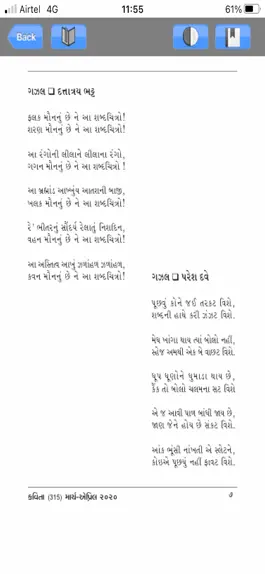 Airtel 4G
11:55
61%
Back
ગઝલ ❑ દત્તાત્રય ભટ્ટ
ફલક મૌનનું છે ને આ શબ્દચિત્રો!
શરણ મૌનનું છે ને આ શબ્દચિત્રો!
આ રંગોની લીલાને લીલાના રંગો,
ગગન મૌનનું છે ને આ શબ્દચિત્રો!
આ બ્રહ્માંડ આખ્ખુંય આતશની બાજી,
ખલક મૌનનું છે ને આ શબ્દચિત્રો!
રે' ભીતરનું સૌંદર્ય રેલાતું નિશદિન,
વહન મૌનનું છે ને આ શબ્દચિત્રો!
આ અસ્તિત્વ આખું ઝળાંહળ ઝળાંહળ,
કવન મૌનનું છે ને આ શબ્દચિત્રો !
ગઝલ ❑ પરેશ દવે
પૂછવું કોને જઈ તરકટ વિશે,
શબ્દની હાથે કરી ઝંઝટ વિશે.
મેઘ ખાંગા થાય ત્યાં બોલો નહીં,
સ્હેજ અમથી એક બે વાછટ વિશે.
ધૂપ ધૂણોને ધુમાડા થાય છે,
કૈંક તો બોલો ચલમના સટ વિશે
એ જ આવી પાળ બાંધી જાય છે,
જાણ જેને હોય છે સંકટ વિશે.
આંક ભૂંસી નાખતી એ સ્લેટને,
કોઈએ પૂછ્યું નહીં ફાવટ વિશે.
કવિતા (315) માર્ચ-એપ્રિલ ૨૦૨૦
૭